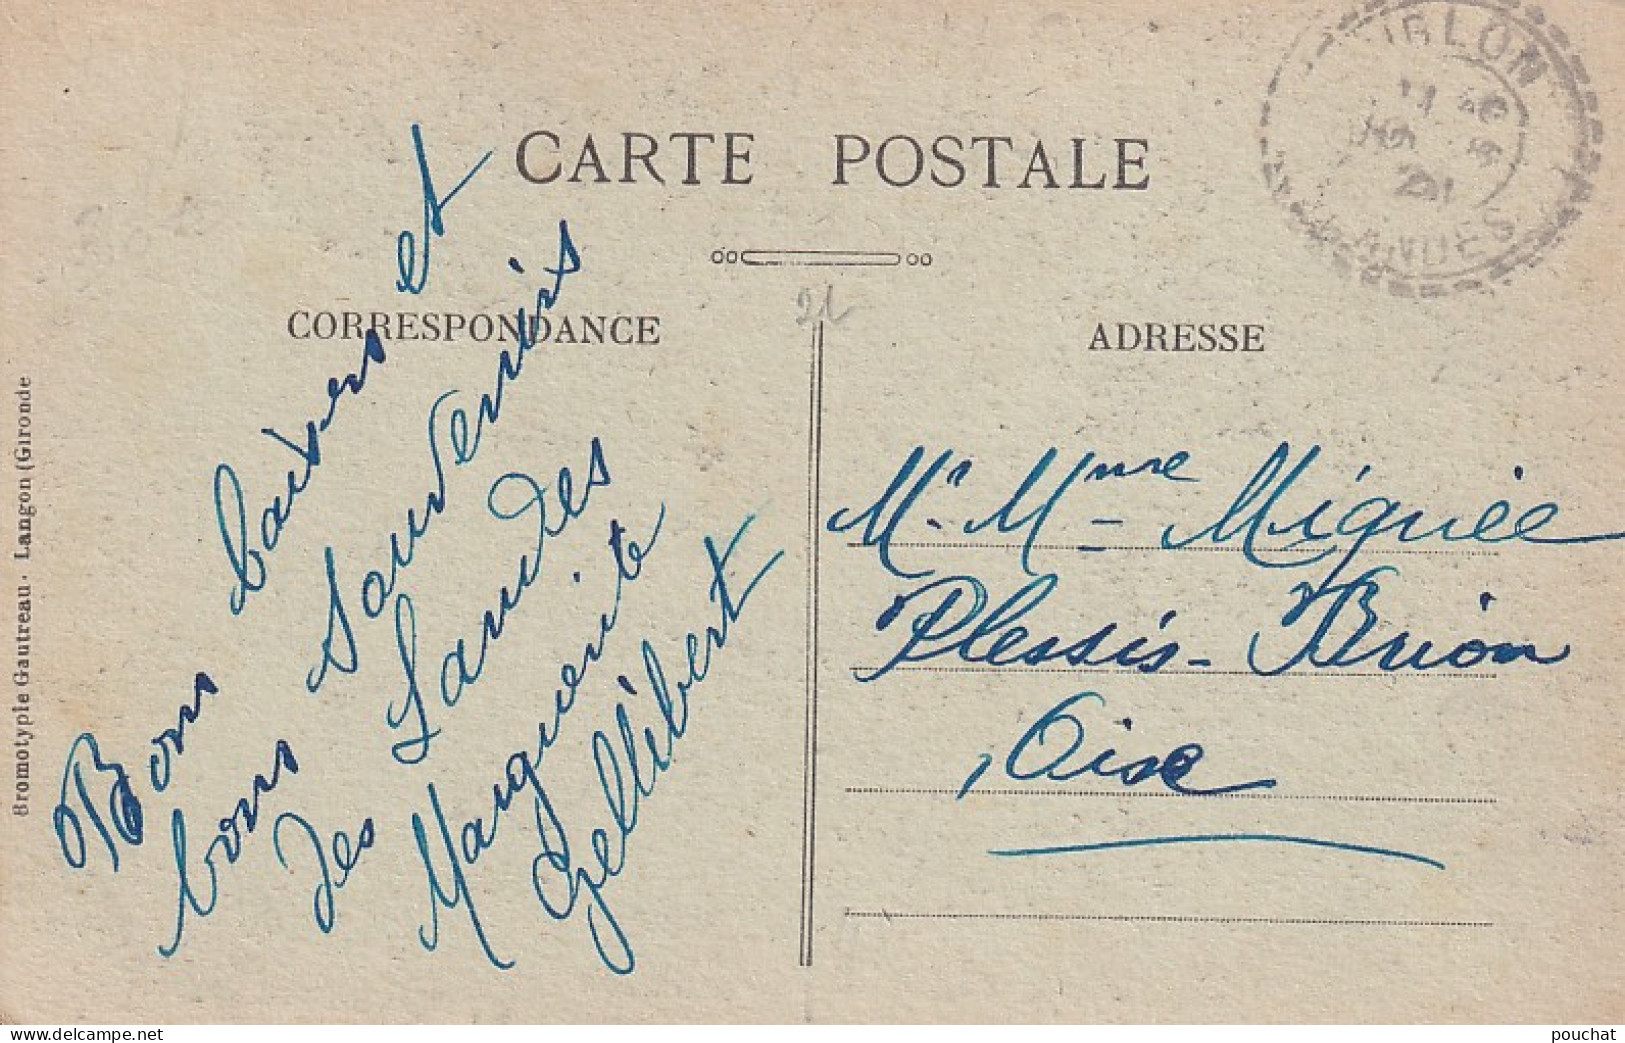 CARTE POSTALE
CORRESPONDANCE
ADRESSE
Bons baisers et
bons souvenirs
des Landes
Marguerite
Gellibert
Mr. Mme Miquée
Plessis-Brion
Oise
Bromotypie Gautreau. Langon (Gironde
21
LANDES
www.delcampe.net
pouchat